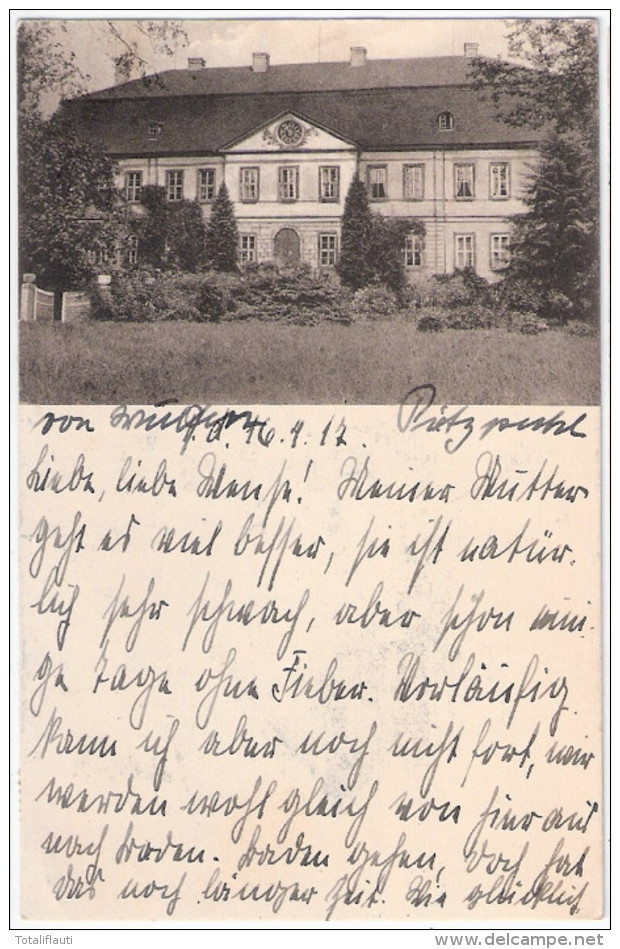 von
P. d. 16.4.12.
Liebe, liebe Wense! Meiner Mutter
geht es viel besser, sie ist natür-
lich sehr schwach, aber schon eini-
ge Tage ohne Fieber. Vorläufig
kann ich aber noch nicht fort, wir
werden wohl gleich von hier aus
nach Baden-Baden gehen, doch hat
das noch länger Zeit. Wie glücklich
Totaliflauti
www.delcampe.net